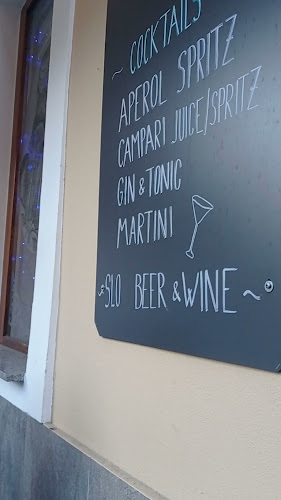 ~ COCKTAILS
APEROL SPRITZ
CAMPARI JUICE/SPRITZ
GIN & TONIC
MARTINI
~SLO BEER & WINE ~